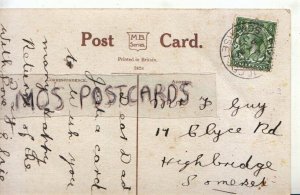 Post Card.
M.B
Series.
Printed in Britain.
CORRESPONDENCE.
ADDRESS.
Dear Dad
Just a card
to wish you
many Happy
Returns of the
with love
MOS POSTCARDS
Mr F Guy
17 Clyce Rd
Highbridge
Somerset